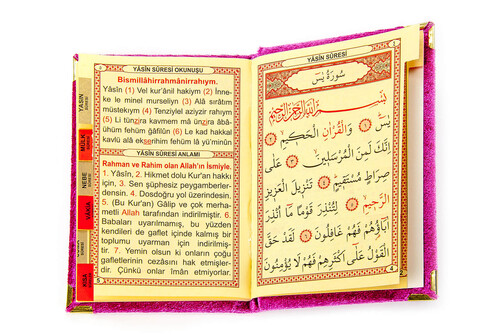 YÂSİN SÛRESİ OKUNUŞU
Bismillâhirrahmânirrahym.
Yâsîn (1) Vel kur'ânil hakiym (2) İnne-
ke le minel murseliyn (3) Alâ sırâtım
müstekıym (4) Tenziylel aziyzir rahıym
(5) Li tünzira kavmem mâ ünzira âbâ-
ühüm fehüm ğâfilûn (6) Le kad hakkal
kavlü alâ ekserihim fehüm lâ yü'minûn
YÂSİN SÛRESİ ANLAMI
Rahman ve Rahim olan Allah'ın İsmiyle.
1. Yâsîn, 2. Hikmet dolu Kur'an hakkı
için, 3. Sen şüphesiz peygamberler-
densin. 4. Dosdoğru yol üzerindesin.
5. (Bu Kur'an) Gâlip ve çok merha-
metli Allah tarafından indirilmiştir. 6.
Babaları uyarılmamış, bu yüzden
kendileri de gaflet içinde kalmış bir
toplumu uyarman için indirilmiş-
tir. 7. Yemin olsun ki onların çoğu
gafletlerinin cezasını hak etmişler-
dir. Çünkü onlar îmân etmiyorlar.
YASİN
MÜLK
NEBE
YÂSİN SÛRESİ
سورة يس
بسم الله الرحمن الرحيم
يس ١ وَالْقُرْاٰنِ الْحَكٖيمِ ٢
اِنَّكَ لَمِنَ الْمُرْسَلٖينَ ٣ عَلٰى
صِرَاطٍ مُسْتَقٖيمٍ ٤ تَنْزٖيلَ الْعَزٖيزِ
الرَّحٖيمِ ٥ لِتُنْذِرَ قَوْمًا مَٓا اُنْذِرَ
اٰبَٓاؤُهُمْ فَهُمْ غَافِلُونَ ٦ لَقَدْ حَقَّ
الْقَوْلُ عَلٰٓى اَكْثَرِهِمْ فَهُمْ لَا يُؤْمِنُونَ
4